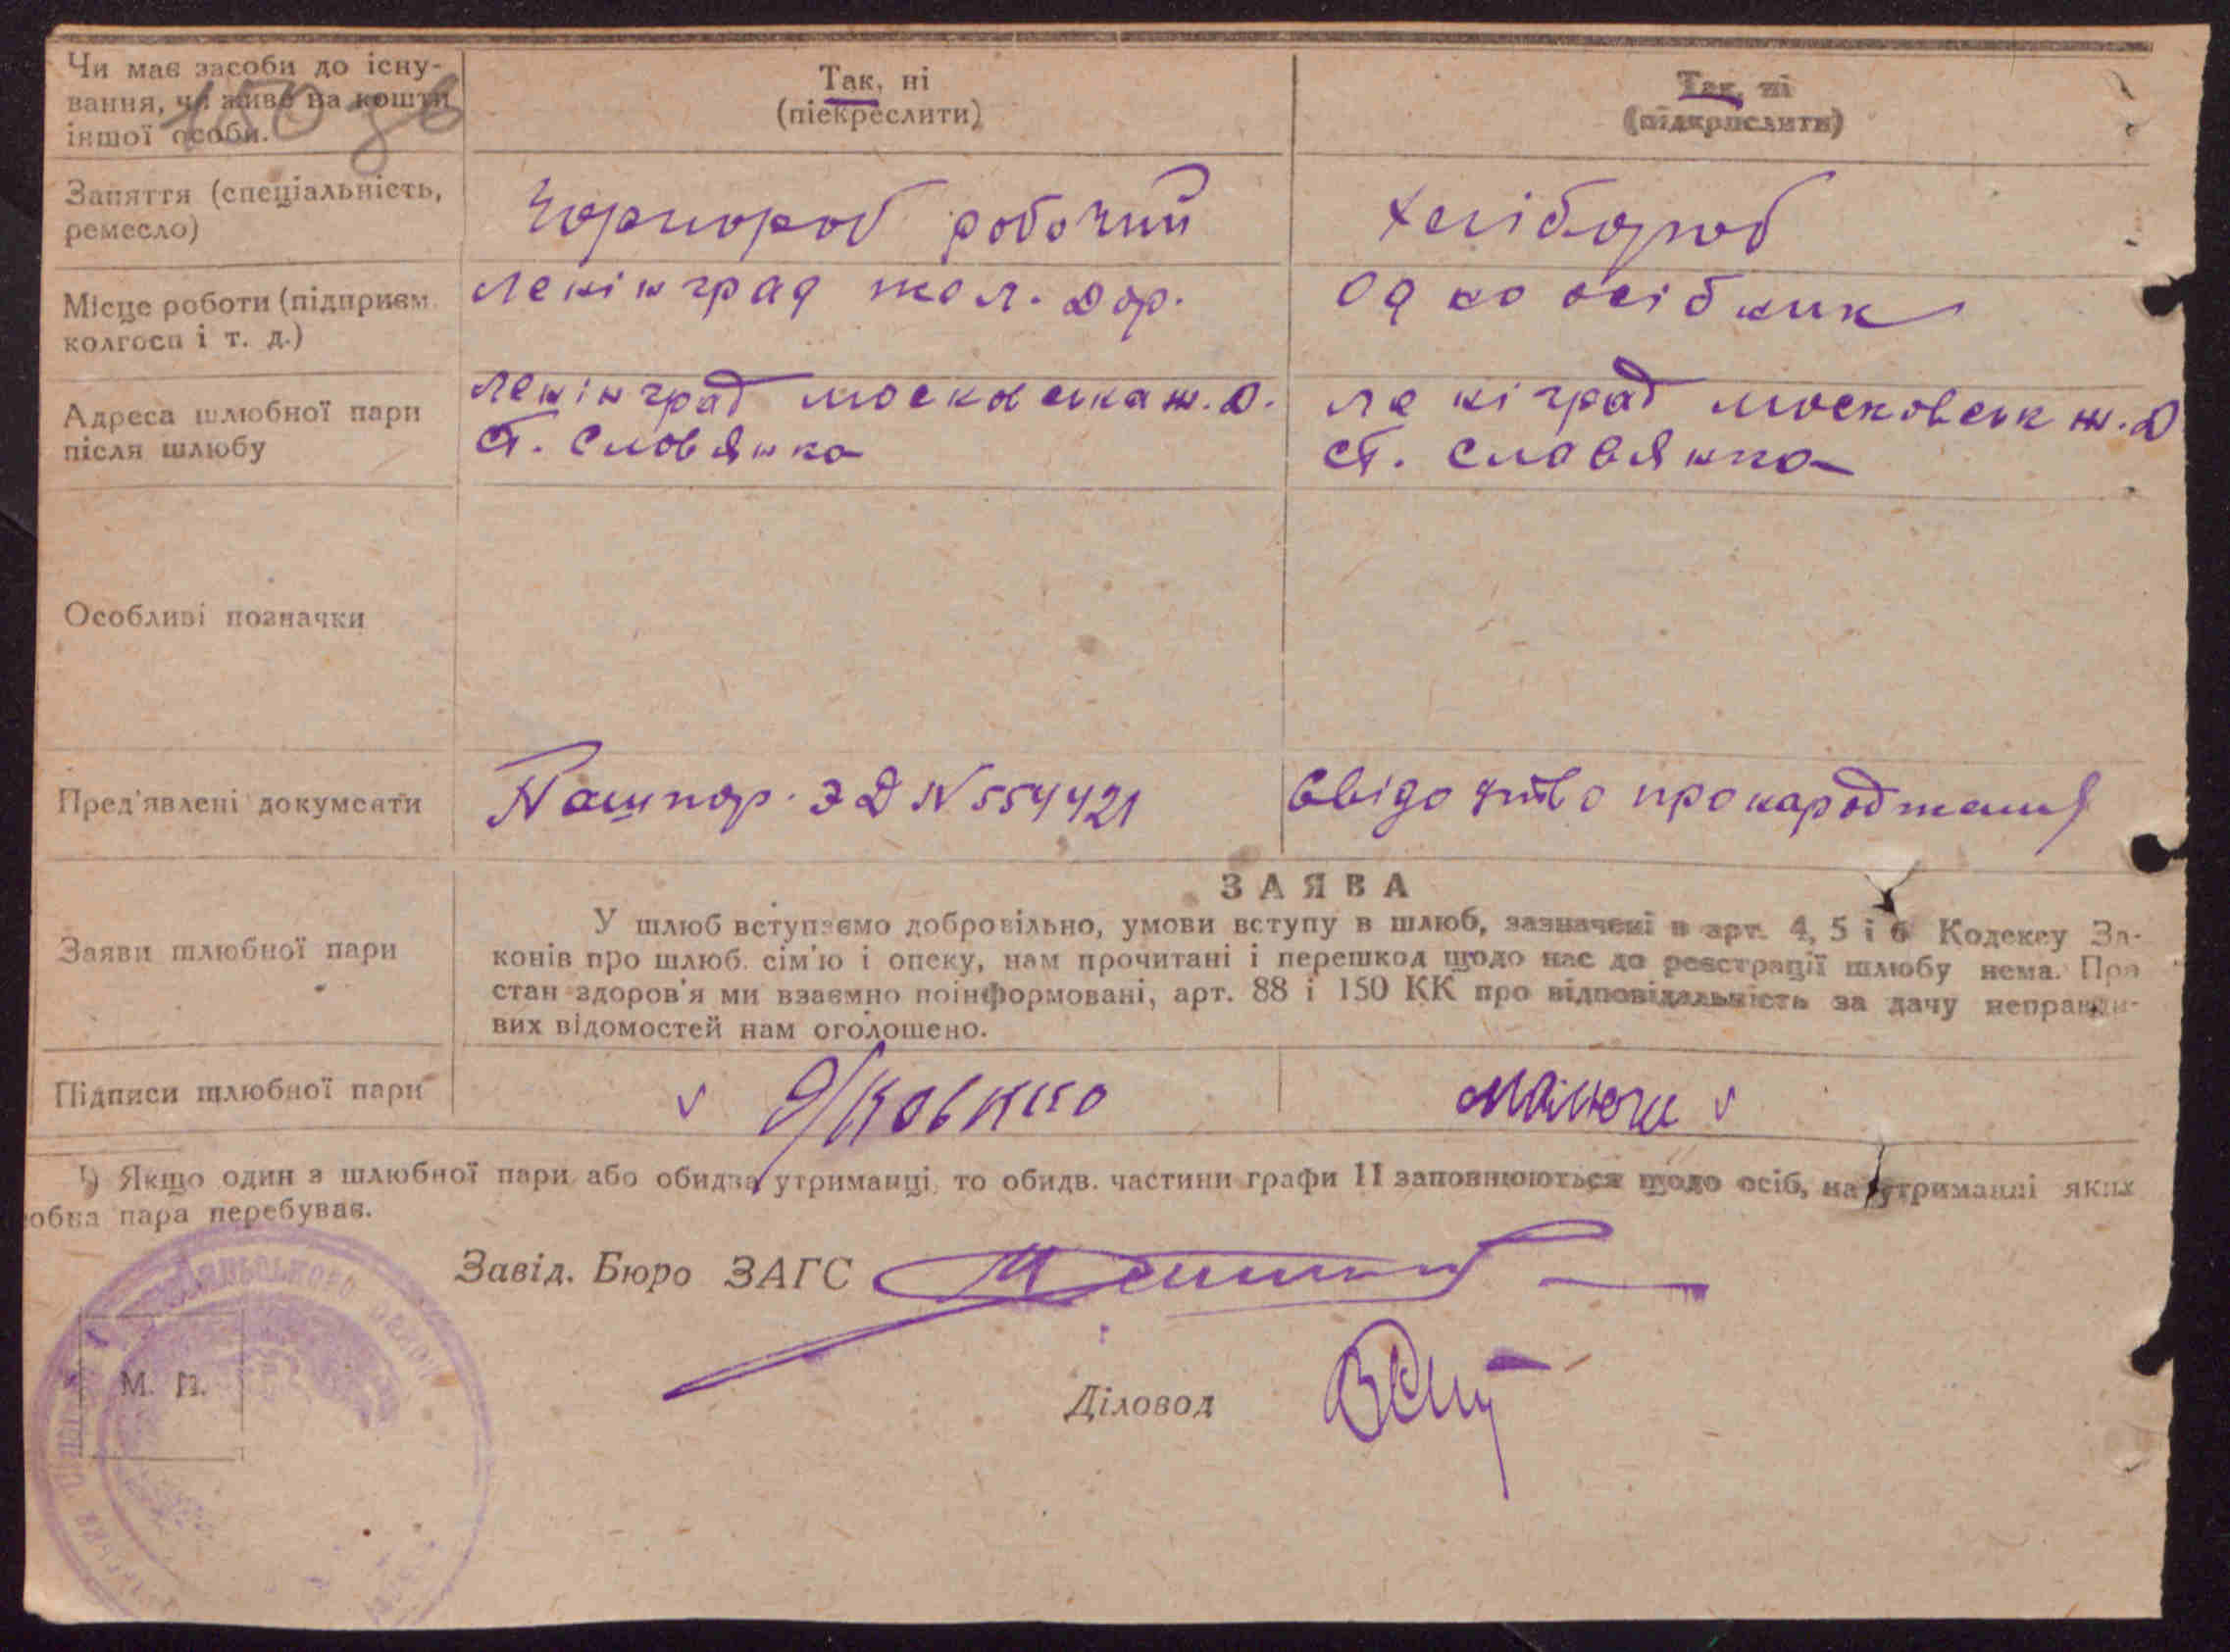 Чи має засоби до існу-
вання, чи живе на кошти
іншої особи.
150 зв
Так, ні
(піекреслити)
Так, ні
(підкрислити)
Заняття (спеціальність,
ремесло)
Чорнороб робочий
хлібороб
Місце роботи (підприєм.
колгосп і т. д.)
Ленінград жол. дор.
одноосібник
Адреса шлюбної пари
після шлюбу
Ленінград московська ж.д.
ст. Словянка
Ленінград московськ ж.д
ст. Славянка
Особливі позначки
Пред'явлені документи
Пашпор. ЭД N 554421
Свідоцтво про народження
Заяви шлюбної пари
ЗАЯВА
У шлюб вступаємо добровільно, умови вступу в шлюб, зазначені в арт. 4, 5 і 6 Кодексу За-
конів про шлюб. сім'ю і опеку, нам прочитані і перешкод щодо нас до реєстрації шлюбу нема. Про
стан здоров'я ми взаємно поінформовані, арт. 88 і 150 КК про відповідальність за дачу неправди-
вих відомостей нам оголошено.
Підписи шлюбної пари
1) Якщо один з шлюбної пари або обидва утриманці, то обидв. частини графи 11 заповнюються щодо осіб, на утриманні яких
юбна пара перебуває.
Завід. Бюро ЗАГС
М. П.
Діловод